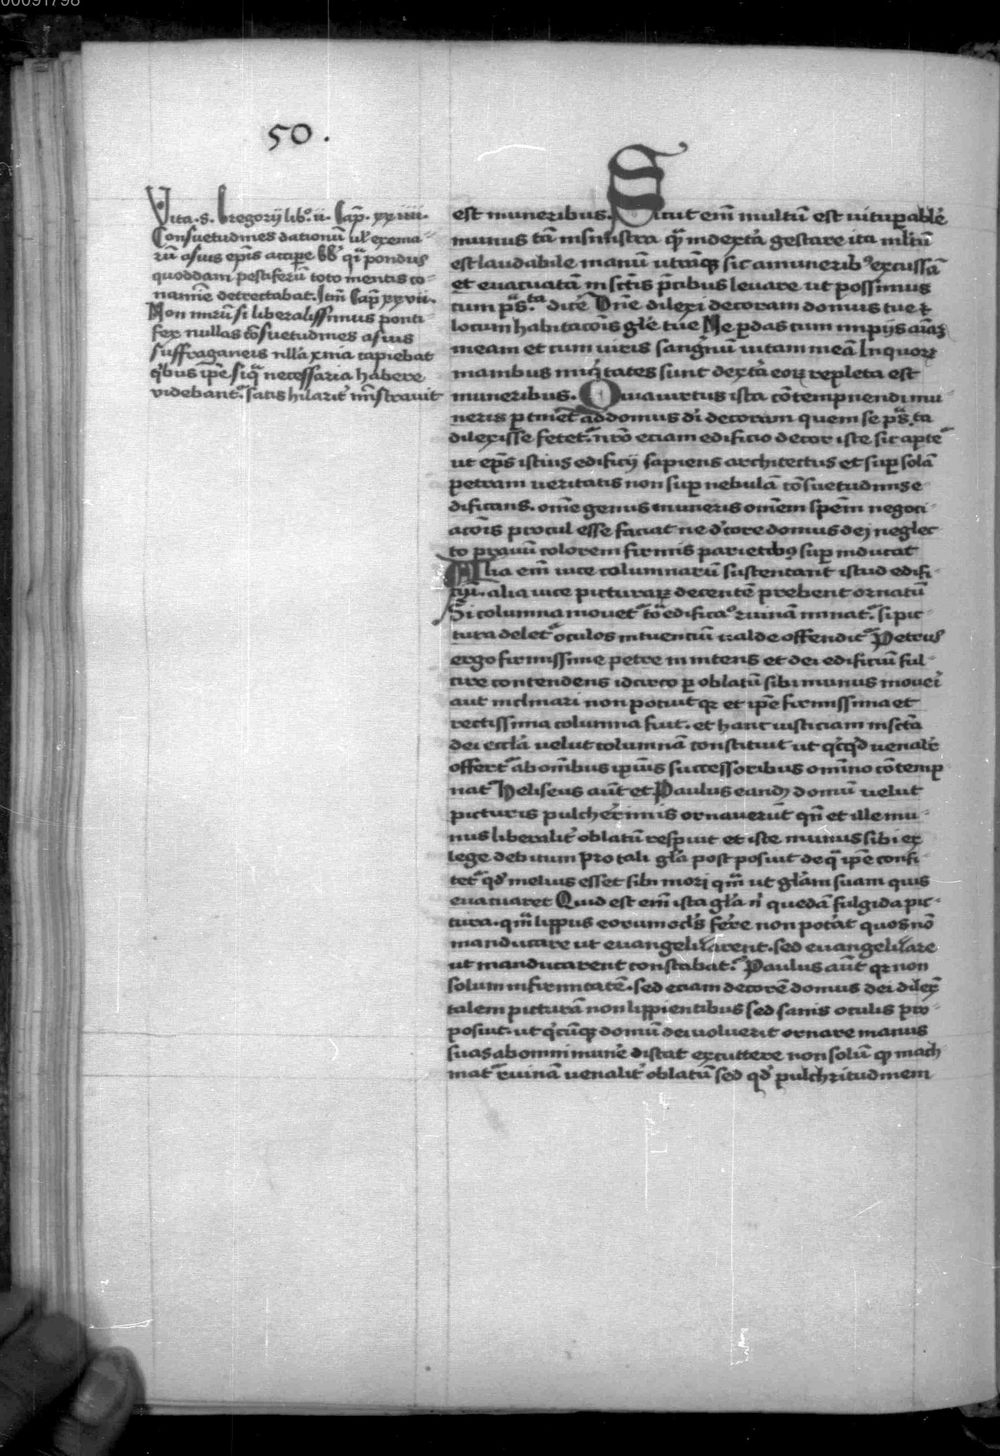 00091798
50.
Vita .s. Gregorij lib.º ii. Cap. xxiiii.
Consuetudines dationū ul' exenia-
rū a suis ep̄is accipe
quoddam pestiferū toto mentis co-
namīe detrectabat. Itm̄ Cap̄ xxvii.
Non mirū si liberalissimus ponti-
fex nullas cōsuetudines a suis
suffraganeis nll'a xnia capiebat
q'bus ip̄e siq̄ necessaria habere
videbant.' satis hilarit' mīstrauit
est muneribus. Sicut enī multū est uitupable
munus tā in sinistra q̄ in dextā gestare ita mltū
est laudabile manū utrāq; sic a munerib' excussā
et euacuatā in sctīs p̄cibus leuare ut possimus
cum p̄s.ta dicē Dn̄e dilexi decoram domus tue ⁊
locum habitacōis gl'e tue Ne p̄das cum impijs aīaꝫ
meam et cum uiris sangnū uitam meā In quoꝝ
manibus iniq'tates sunt dextā eoꝝ repleta est
muneribus. Quia uirtus ista cōtempnendi mu
neris p̄tinet ad domus di decoram quem se p̄s.ta
dilexisse fetet'. nrō eciam edificio decor iste sic apte
ut ep̄s istius edificij sapiens architectus et sup solā
petram ueritatis non sup nebulā cōsuetudinis e
dificans. om̄e genus muneris om̄em spem negoci
acōis procul esse faciat ne d'core domus dei neglec
to prauū colorem firmis parietibus sup inducat
Alia enī uice columnarū sustentant istud edifi-
ciū. alia uice picturaꝝ decentē prebent ornatū
Si columna mouet' to' edificaº ruinā minat'. si pic
tura delet' oculos intuentiū ualde offendit' Petrus
ergo firmissime petre innitens et dei edificiū ful-
cire contendens idcirco p̄ oblatū sibi munus moueī
aut inclinari non potuit qꝛ et ip̄e firmissima et
rectissima columna fuit. et hanc iusticiam in sctā
dei eccl'a uelut columnā constituit ut q'cq'd uenalē
offert' ab omībus ip̄ius successoribus omīno cōtemp
nat' Heliseus aūt et Paulus eandē domū uelut
picturis pulcherimis ornauerūt qn̄ et ille mu-
nus liberalit' oblatū respuit et iste munus sibi ex
lege debitum pro tali gl'a post posuit de q̄ ip̄e confi-
tet' q'd melius esset sibi mori qm̄ ut gl'am suam quis
euacuaret Quid est enī ista gl'a n' quedā fulgida pic-
tura. qm̄ lippus eorum oc'ls ferre non potat quos nō
manducare ut euangelizarent. sed euangelizare
ut manducarent constabat'. Paulus aūt qꝛ non
solum infirmitatē. sed eciam decorē domus dei dilex̄
talem picturā non lippientibus sed sanis oculis pro-
posuit. ut q'cūq; domū dei uoluerit ornare manus
suas ab omni mune' discat excuttere non solū q; mach
inat' ruinā uenalit' oblatū sed q'd pulchritudinem